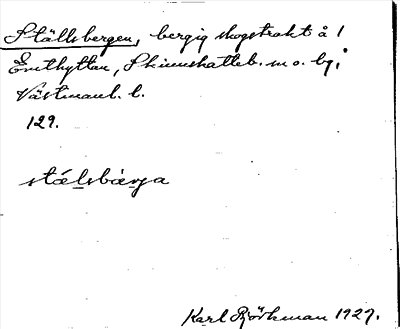 Ställsbergen, bergig skogstrakt å 1
Enkhyttan, Skinnskatteb. s o. by,
Västmanl. l.
129.
stálsbärja
Karl Björkman 1927.